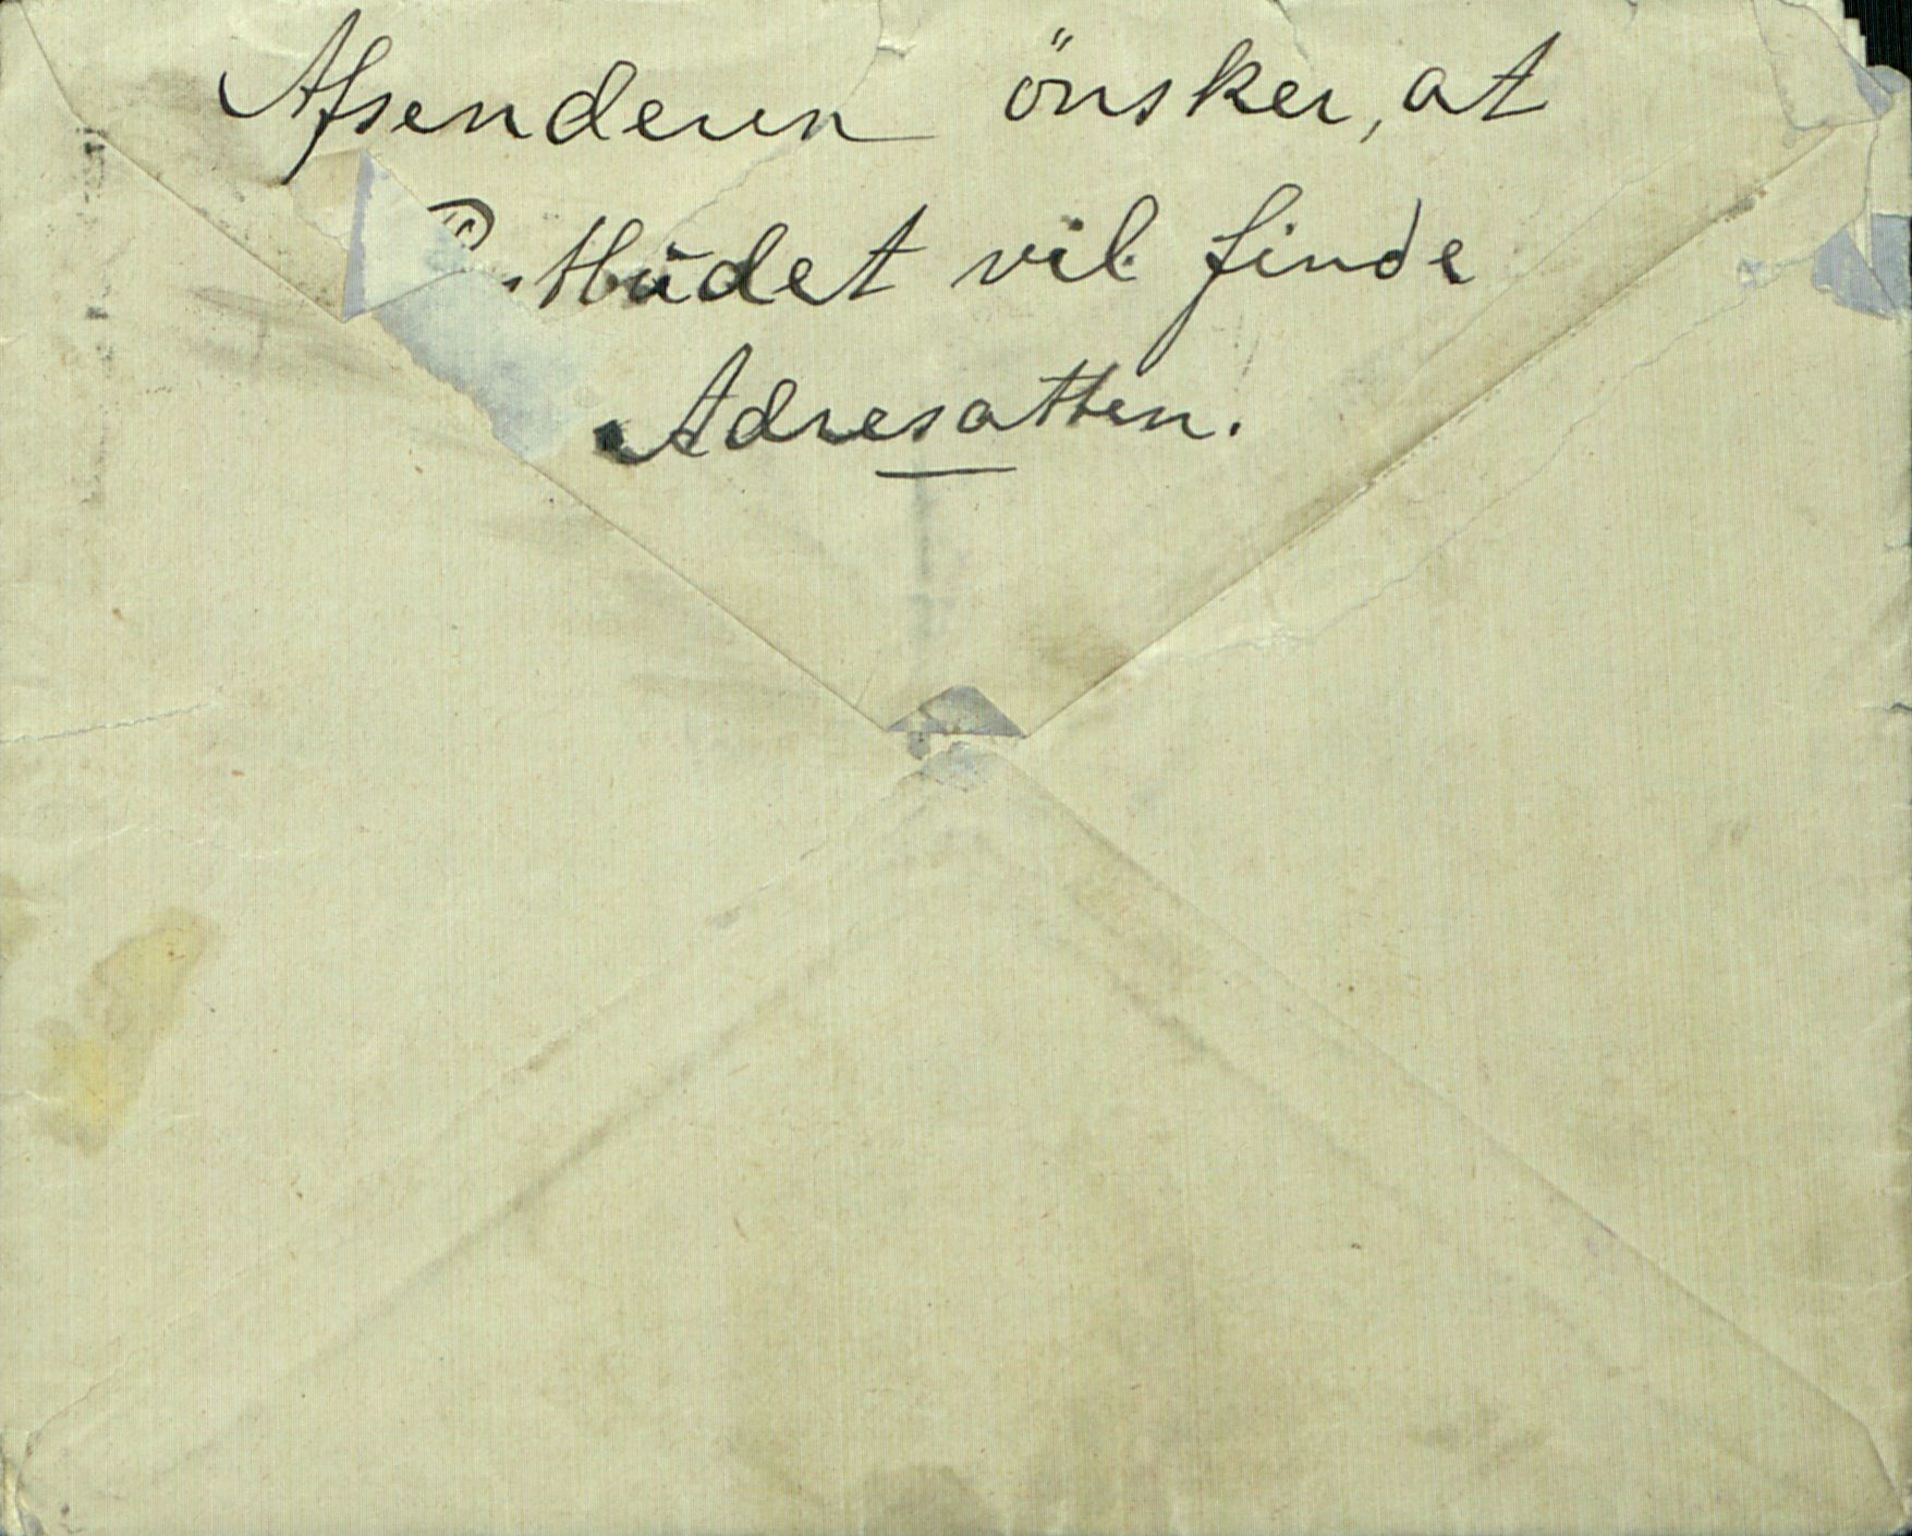 Afsenderen önsker, at
Postbudet vil finde
Adresatten.